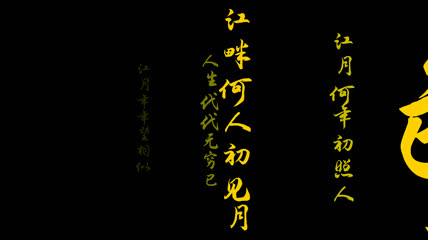 江月何年初照人
江畔何人初见月
人生代代无穷已
江月年年望相似